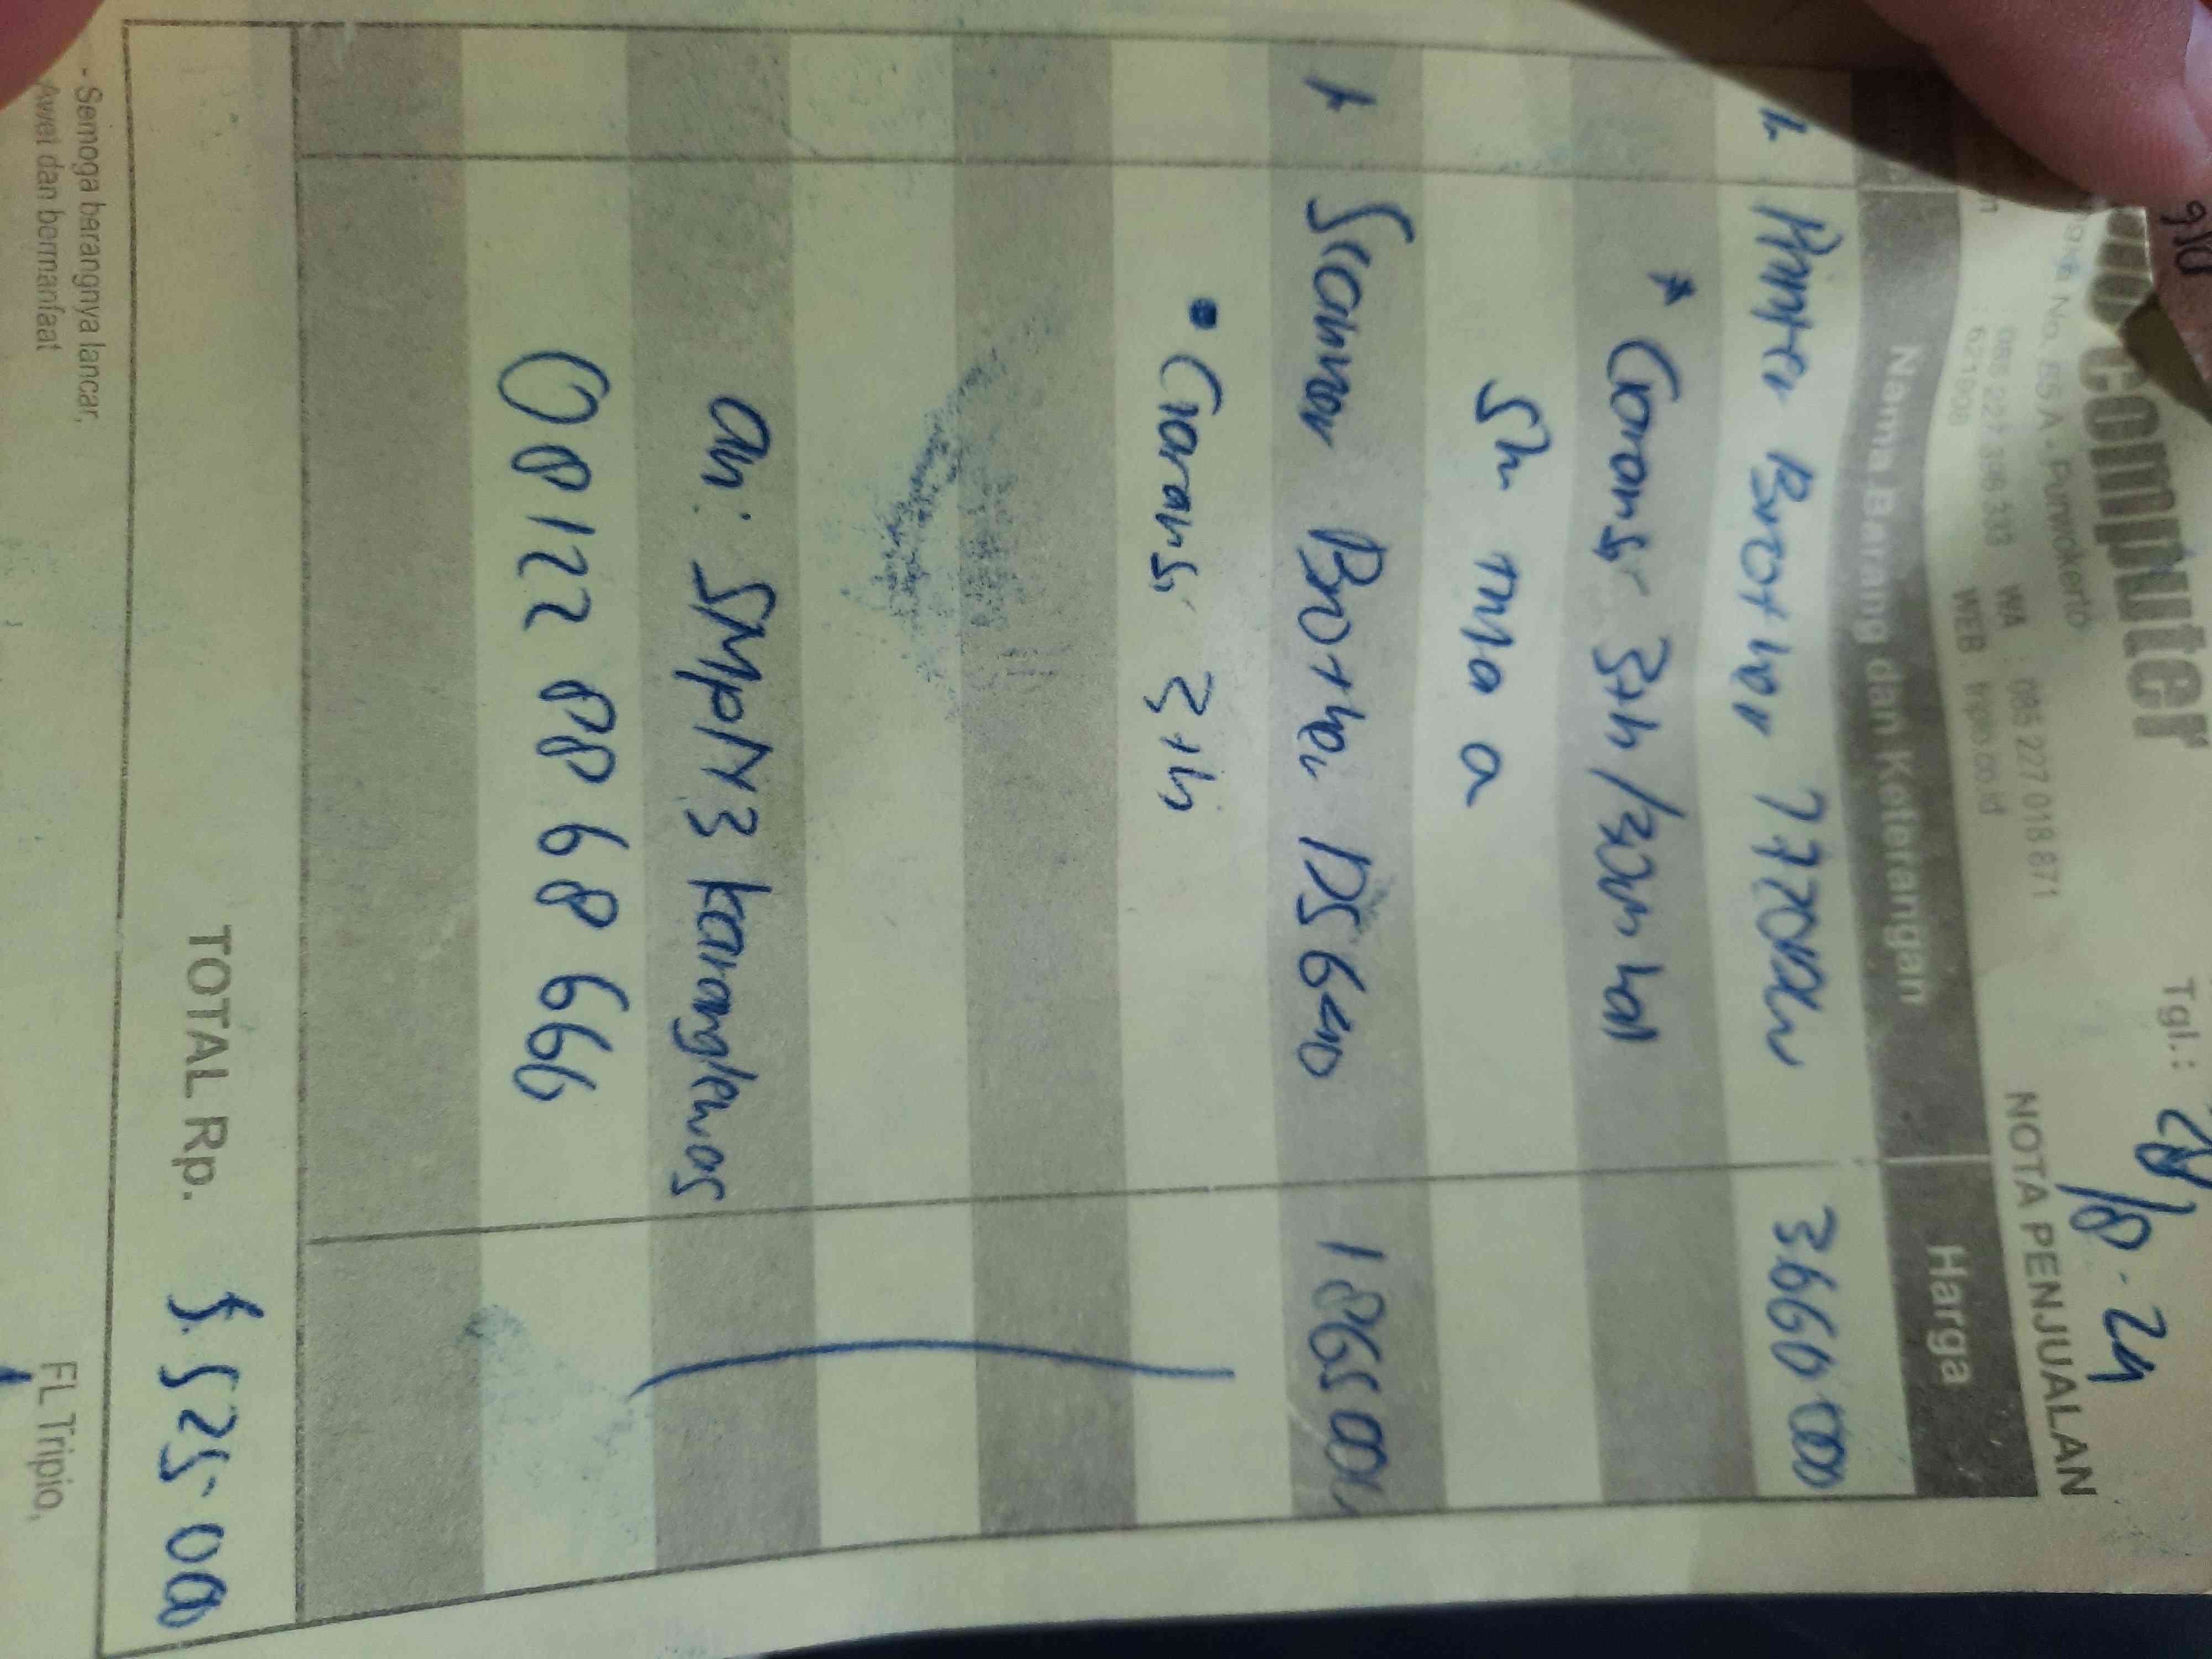 computer
Tgl.: 28/8-24
No. 85 A - Purwokerto
WA : 085 227 018 871
621908 WEB : fripio.co.id
NOTA PENJUALAN
Nama Barang dan Keterangan Harga
1 Printer Brother 3660 000
* Garansi 3th/30m hal
1 Scanner Brother DS 640 1865 000
• Garansi 3th
an: SMPN 3 karanglewas
08122 88 68 666
TOTAL Rp. 5.525.000
- Semoga barangnya lancar,
Awet dan bermanfaat
FL Tripio,